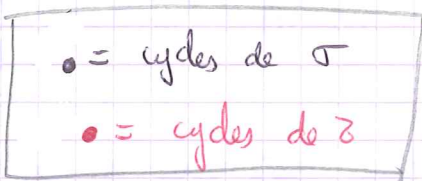 • = cycles de σ
• = cycles de τ